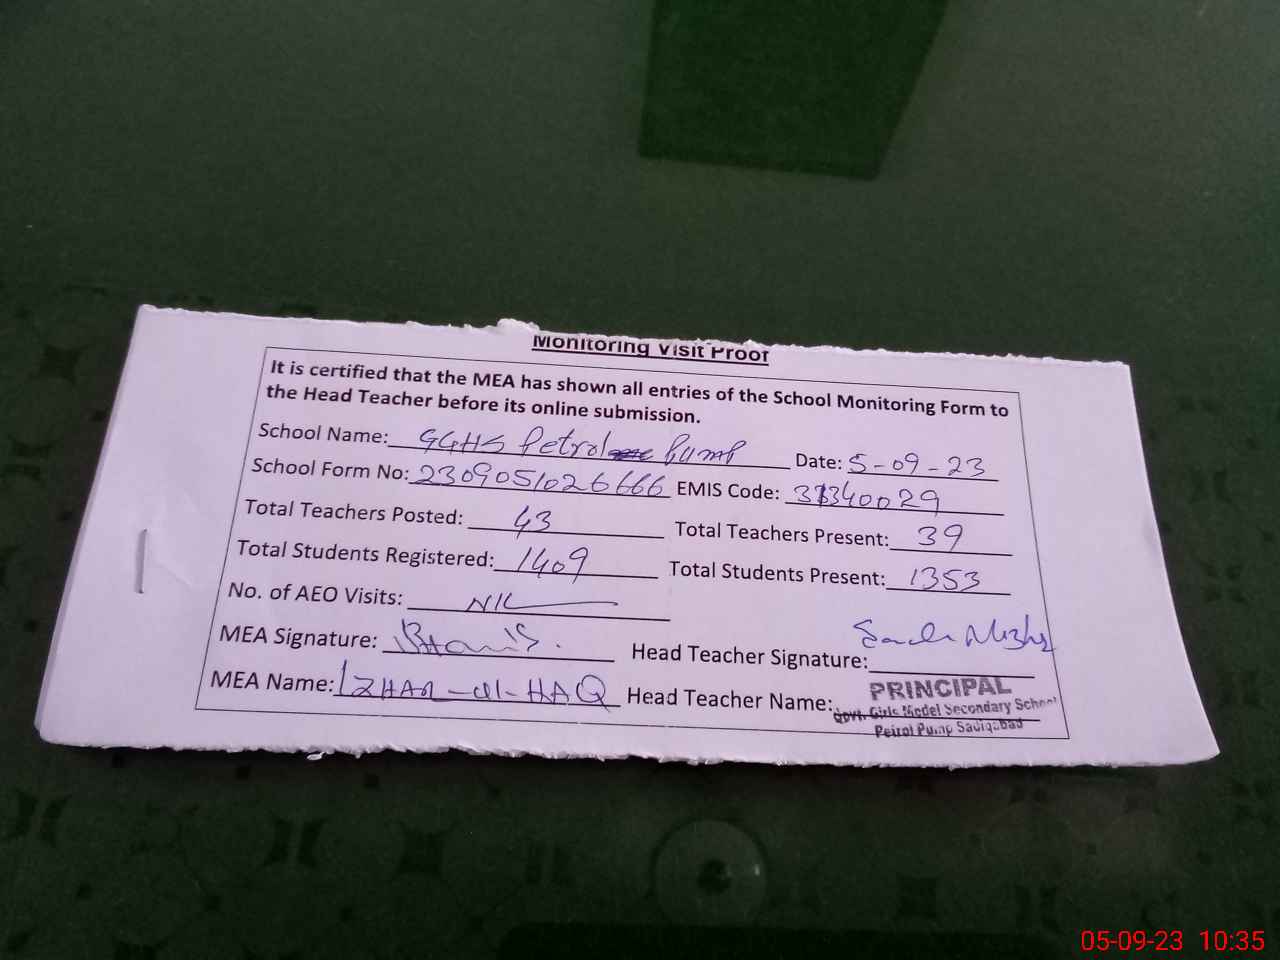 Monitoring Visit Proof
It is certified that the MEA has shown all entries of the School Monitoring Form to
the Head Teacher before its online submission.
School Name: GGHS Petrol Pump Date: 5-09-23
School Form No: 2309051026666 EMIS Code: 31340029
Total Teachers Posted: 43 Total Teachers Present: 39
Total Students Registered: 1409 Total Students Present: 1353
No. of AEO Visits: NIL
MEA Signature: Head Teacher Signature:
MEA Name: IZHAR-ul-HAQ Head Teacher Name:
PRINCIPAL
Govt. Girls Model Secondary School
Petrol Pump Sadiqabad
05-09-23 10:35